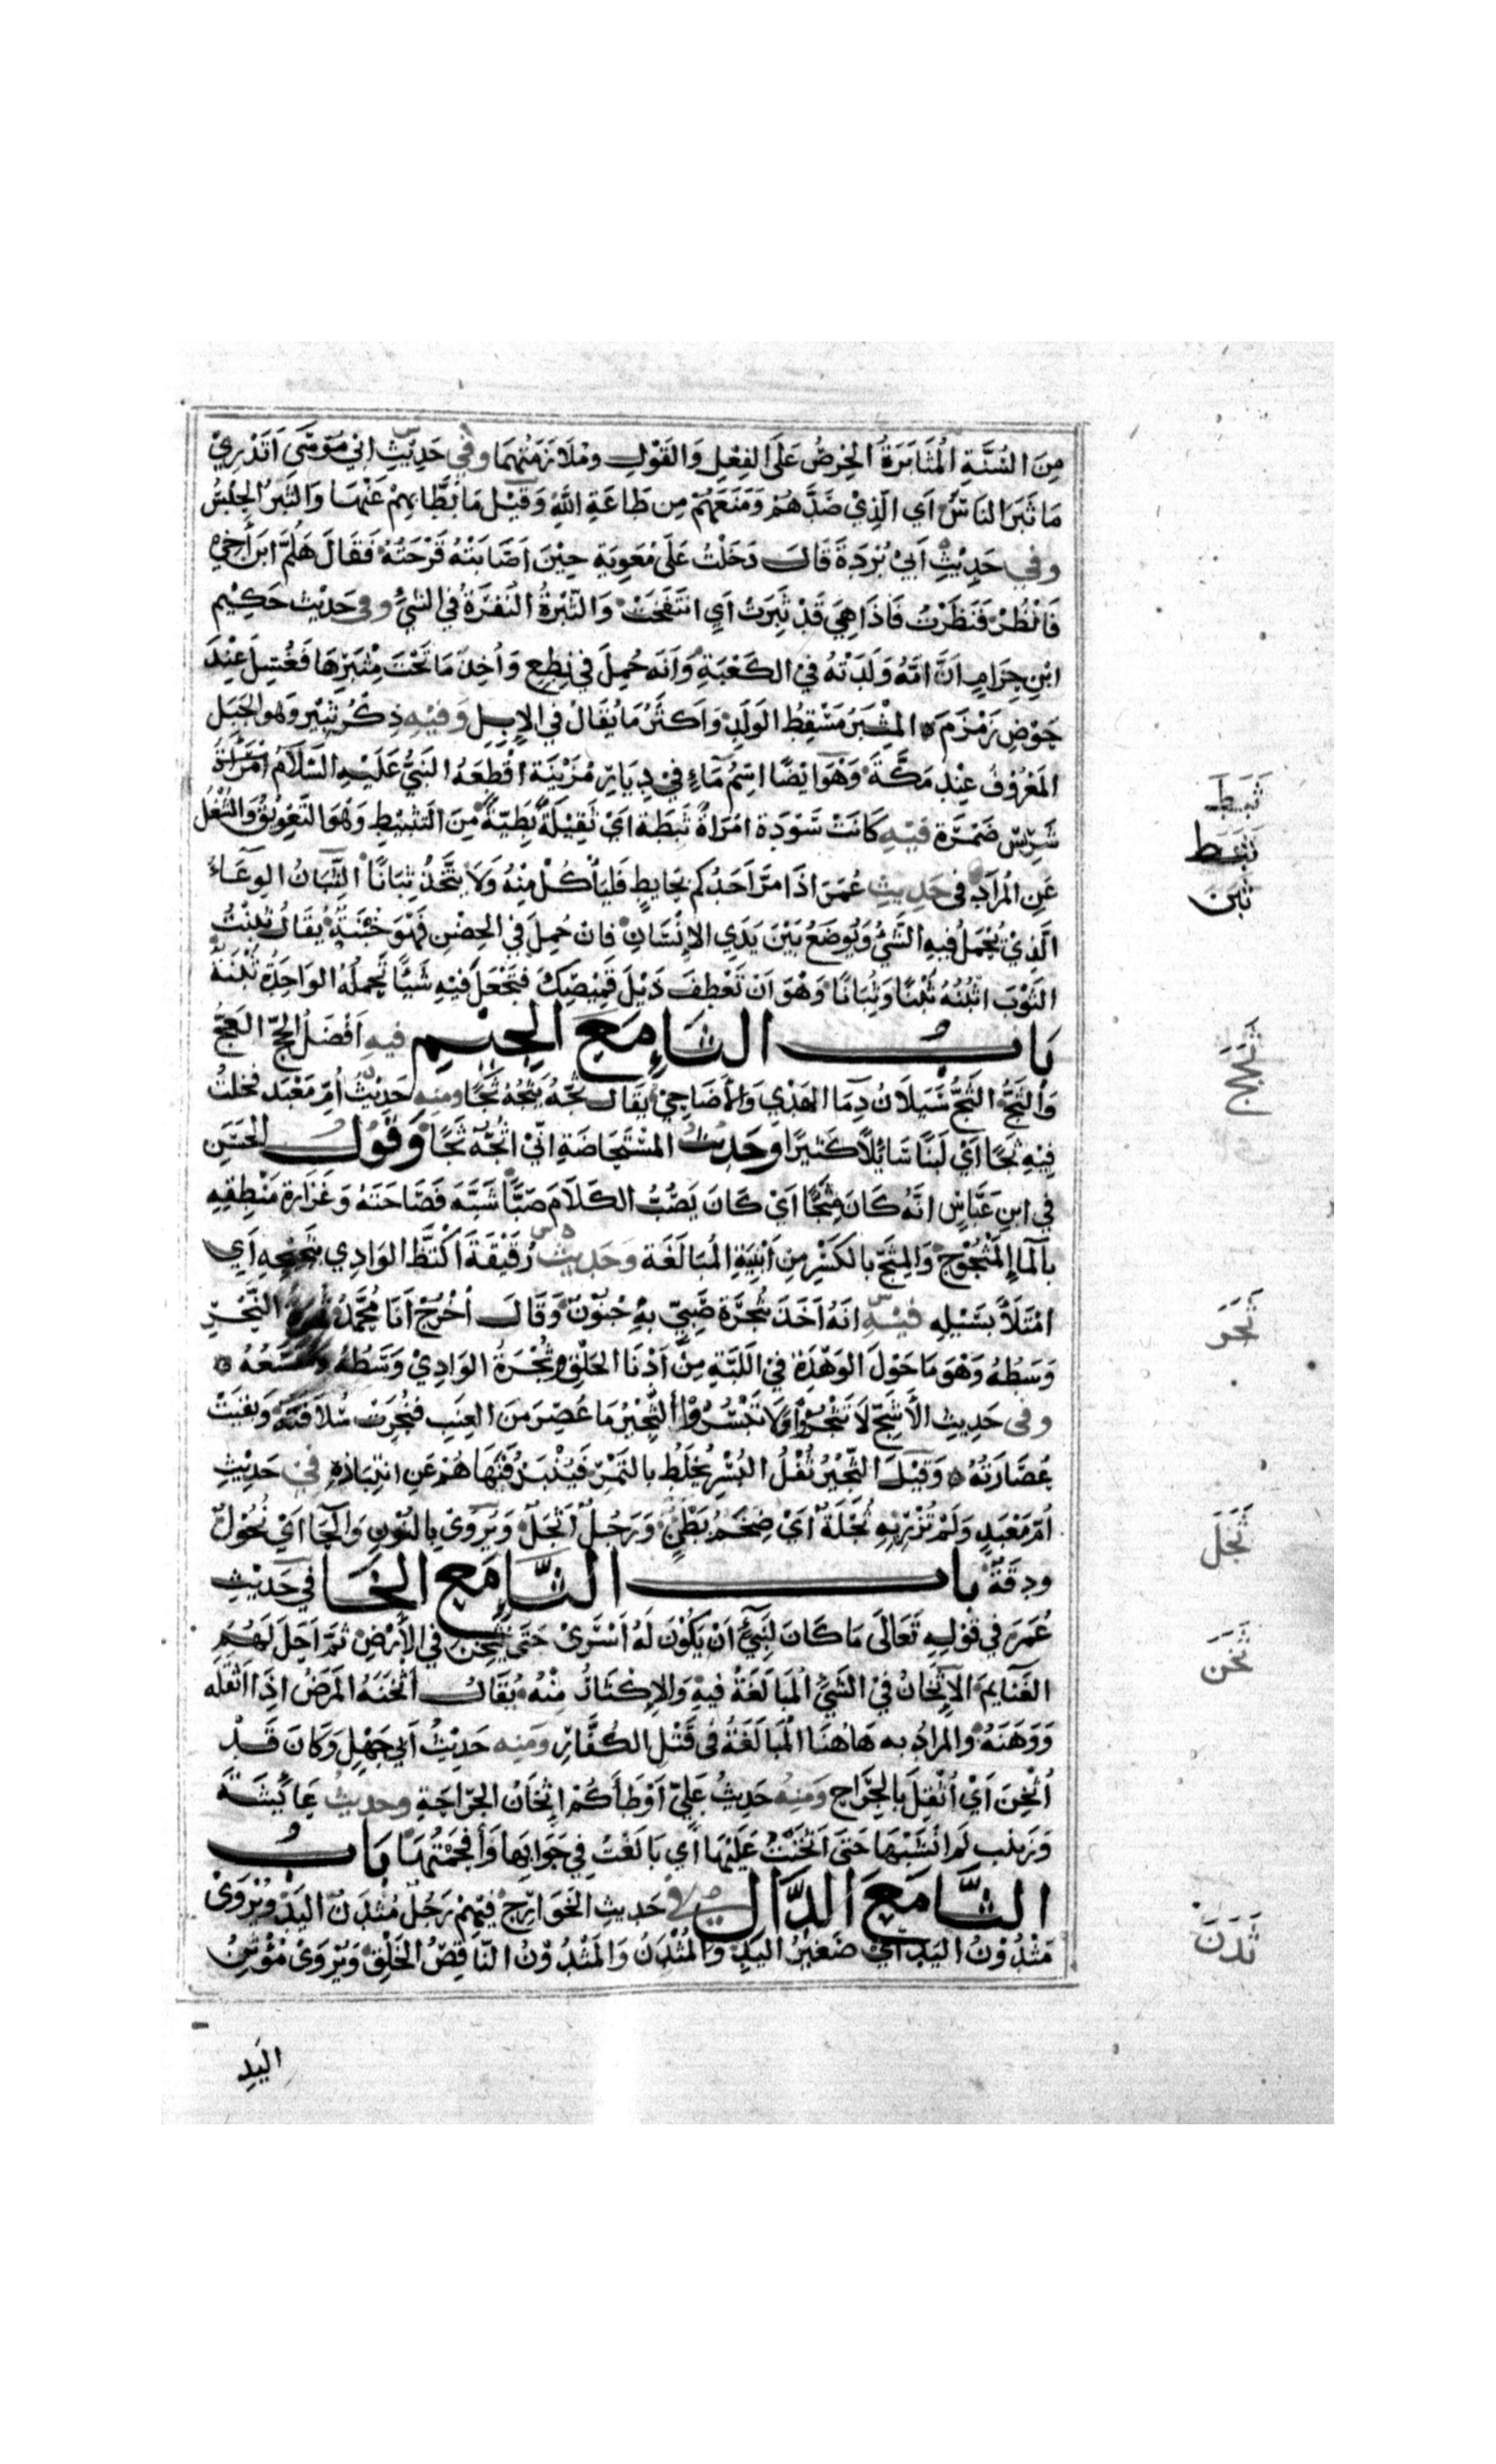 مِنَ السُّنَّةِ المُثَابَرَةُ الحِرْصُ عَلَى الفِعْلِ وَالقَوْلِ وملَازَمَتُهمَا وفي حَدِيْثِ ابي مُوسَى اَتَدْرِيْ
مَا ثَبَرَ النَاسَ اَي الّذِيْ صَدَّهُمْ وَمَنَعَهُمْ مِن طَاعَةِ اللهِ وَقيْلَ مَا بَطَّا بِهِمْ عَنْهَا وَالثَبْرُ الحَبْسُ
وفي حَدِيْثِ اَبيْ بُرْدَةَ قَالَ دَخَلْتُ عَلَى مُعَوِيَةِ حِيْنَ اَصَابَتْهُ قَرْحَتُهُ فَقَالَ هَلُمَّ ابنَ أَخِي
فَانْظُرْ فَنَظَرْتُ فَاذَا هِيَ قَدْ ثَبِرَتْ اَيِ انتَفَتَحَتْ وَالثَّبْرَةُ النُقْرَةُ في الشيْ وفي حَدِيْث حَكِيْمِ
ابْنِ حِزَامٍ اَنَّ امَّهُ وَلَدَتْهُ في الكَعْبَةِ وَاَنَه حُمِلَ في نِطَعٍ وَاُخِذَ مَا تَحْتَ مَثْبَرِهَا فَغُسِلَ عِنْدَ
حَوْضِ زَمْزَمَ المَثْبَرُ مَسْقِطُ الوَلَدِ وَاَكثَرُ مَا يُقَالُ في الإِبِلِ وَفيْهِ ذِكْرُ ثَبِيْر وَهو الجَبَل
المَعْرُوْفُ عِنْدَ مَكَّةَ وَهْوَ ايْضًا اسْمُ مَآءٍ فيْ دِيَارِ مُزَيْنَةَ اقْطَعَهُ النَبيُّ عَلَيْهِ السَّلَامُ
شَرِيْسَ ضَمْرَةَ فيْهِ كَانَتْ سَوْدَة امْرَاةً ثَبِطَة ايْ ثَقِيْلَةً بَطِيّةً مِنَ التَثْبيْطِ وَهُوَ التَّعْوِيْقُ وَالشُّغْل
عَنِ المُرَادِ في حَدِيثِ عُمَرَ اذَا مَرَّ اَحَدُكم بحَايِطٍ فَليَأكُلْ مِنْهُ وَلَا يَتَّخِذْ ثِبَانًا الثِّبَانُ الوِعَآءُ
الَّذِيْ يُحْمَلُ فيهِ الشَّيْ وَيُوضَعُ بَيْنَ يَدَيِ الإِنْسَانِ فَانْ حُمِلَ في الحِضْنِ فَهْوَ خُبْنَةٌ يُقَالُ ثَبَنْتُ
الثَوْبَ اثْبِنُهُ ثَبْنًا وَثِبَانًا وَهْوَ اَنْ تَعْطِفَ ذَيْلَ قَمِيْصِكَ فَتَجْعَلَ فيْهِ شَيْئًا تَحْمِلُهُ الوَاحِدَةُ ثُبْنَة
بَابُ الثَاءِ مَعَ الجِيْم فيهِ اَفْضَلُ الحَجّ العَجُّ
وَالثَجُّ الثَجُّ سَيَلَانُ دِمَا الهَدْي وَالأَضَاحِي يُقَالُ ثَجَّهُ يَثُجُّهُ ثَجًّا ومِنه حَدِيْثُ اُمّ مَعْبَد فحَلَبَ
فِيْهِ ثَجًّا اَيْ لَبَنًا سَائِلًا كَثيْرًا وحَدِيْثُ المُسْتَحَاضَةِ انّيْ اثُجُّهُ ثَجًّا وَقَوْلُ الحَسَنِ
في ابنِ عَبَّاسٍ انَّهُ كَانَ مِثَجًّا اَيْ كَانَ يَصُبُّ الكَلَامَ صَبًّا شَبَّهَ فَصَاحَتَهُ وَغَزَارَةَ مَنْطِقِهِ
بالمَاءِ المَثْجُوْجِ وَالمِثَجّ بالكَسْرِ مِنْ اَبْنِيَةِ المُبَالَغَةِ وَحَدِيْثُ رُقَيْقَةَ اكْتَظَّ الوَادِي بثَجِيْجِهِ اَي
امْتَلَأَ بسَيْلِهِ فيْهِ انَهُ اَخَذَ بثُجْرَة صَبِيّ بهِ جُنُوْنٌ وَقَالَ اُخْرُجْ اَنَا مُحَمَّدٌ ثُجْرَةُ النَّحْرِ
وَسَطُهُ وَهْوَ مَا حَوْلَ الوَهْدَةِ في اللَبَّةِ مِنْ اَدْنَا الحَلْقِ وَثُجْرَةُ الوَادِيْ وَسَطُهُ وَمُتَّسَعُهُ
وفي حَدِيثِ الأَشَجّ لَا تَثْجُرُوْا وَلَا تَبْسُرُوْا الثَّجِيْرُ مَا عُصِرَ مِنَ العِنَبِ فَجَرَتْ سُلَافَتُهُ وَبَقِيَتْ
عُصَارَتُهُ وَقِيْلَ الثَّجِيْرُ ثُفْلُ البُسْرِ يُخْلَطُ بالتَمْرِ فَيُنْبَذُ فَنَهَاهُمْ عَنِ انتِبَاذِهِ في حَدِيْثِ
اُمّ مَعْبَدٍ وَلَمْ تُزْرِ بهِ ثُجْلَةٌ اَيْ ضِخَمُ بَطْنٍ وَرَجُلٌ اَثْجَلُ وَيُرْوَى بالنُوْنِ وَالحَا اَيْ نُحُوْلٌ
ودِقَّةٌ بابُ الثَّاءِ مَعَ الخَا في حَدِيْثِ
عُمَرَ في قَوْلِهِ تَعَالَى مَا كَانَ لِنَبِيّ اَنْ يَكُوْنَ لَهُ اَسْرَى حَتَى يُثْخِنَ في الأَرْضِ ثمَّ اَحَلَّ لَهُمُ
الغَنَايِمَ الاِثْخَانُ في الشَيْ المُبَالَغَةُ فيهِ وَالاِكْثَارُ مِنْهُ يُقَالُ اَثْخَنَهُ المَرَضُ اِذَا اَثْقَلَه
وَوَهَنَهُ وَالمرَادُ به هَاهُنَا المُبَالَغَةُ في قَتْلِ الكُفَّارِ وَمِنه حَدِيْثُ اَبي جَهْلٍ وَكَانَ قَدْ
اُثْخِنَ اَيْ اُثْقِلَ بالجِرَاحِ وَمِنْهُ حَدِيْثُ عَلِيّ اَوْطَأَكُمْ اِثْخَانُ الجِرَاحَةِ وحَدِيْثُ عَايِشَةَ
وَزَيْنَب لَم اَنْشَبْهَا حَتَى اَثْخَنْتُ عَلَيْهَا اَي بَالَغْتُ في جَوَابهَا وَأَفحَمْتُهَا بَابُ
الثَّاءِ مَعَ الدَّال في حَدِيثِ الخَوَارِجِ فيْهِمْ رَجُلٌ مُثْدَنُ اليَدِ وَيُرْوَى
مَثْدُوْنُ اليَدِ اَيْ صَغيْرُ اليَدِ وَالمُثْدَنُ وَالمَثْدُوْنُ النَّاقِصُ الخَلْقِ وَيُرْوَى مُوْتَنُ
اليَدِ
ثَبَطَ
ثَبَطَ
ثَبَنَ
ثَجَج
ثَجَر
ثَجَل
ثَخَن
ثَدَنَ